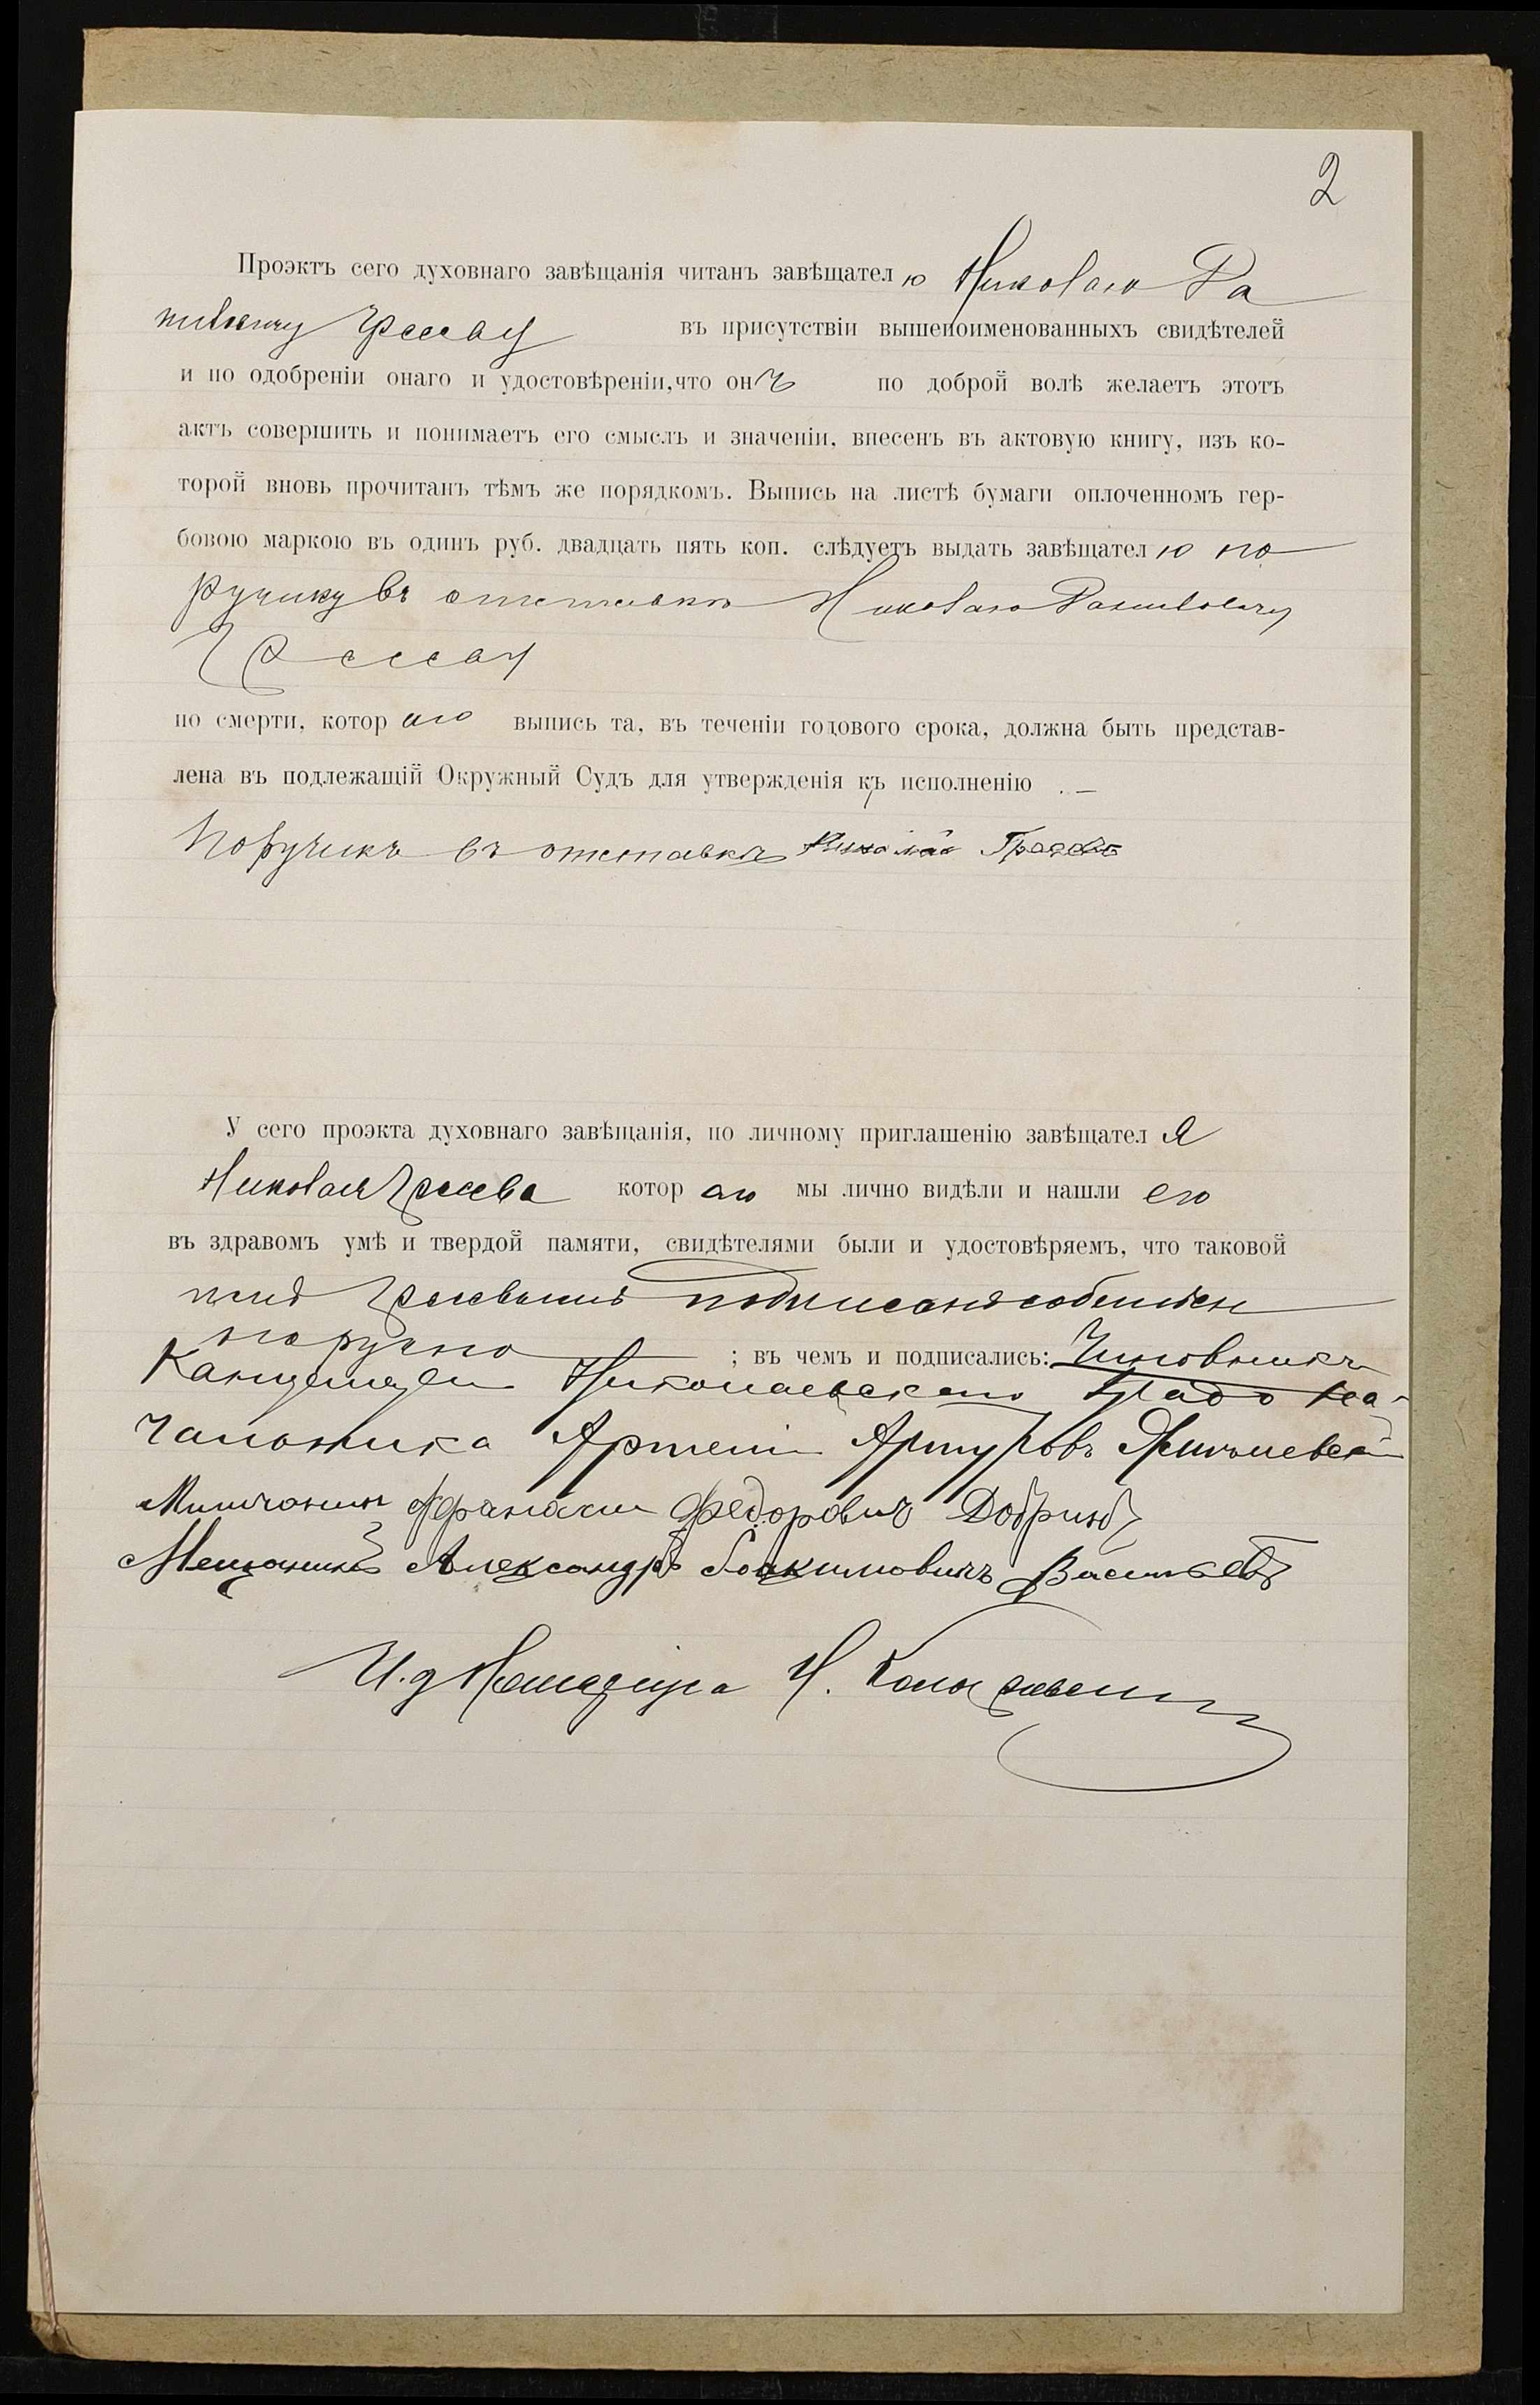 2
Проэктъ сего духовнаго завѣщанія читанъ завѣщателю Николаю Да
ниловичу въ присутствіи вышепоименованныхъ свидѣтелей
и по одобреніи онаго и удостовѣреніи, что онъ по доброй волѣ желаетъ этотъ
актъ совершить и понимаетъ его смыслъ и значеніи, внесенъ въ актовую книгу, изъ ко-
торой вновь прочитанъ тѣмъ же порядкомъ. Выпись на листѣ бумаги оплоченномъ гер-
бовою маркою въ одинъ руб. двадцать пять коп. слѣдуетъ выдать завѣщателю по
ручику въ отставкѣ Николаю Даниловичу
по смерти, котораго выпись та, въ теченіи годового срока, должна быть представ-
лена въ подлежащій Окружный Судъ для утвержденія къ исполненію.—
Поручикъ въ отставкѣ Николай
У сего проэкта духовнаго завѣщанія, по личному приглашенію завѣщателя
Николая котораго мы лично видѣли и нашли его
въ здравомъ умѣ и твердой памяти, свидѣтелями были и удостовѣряемъ, что таковой
подписанъ собствен
норучно ; въ чемъ и подписались: Чиновникъ
Канцеляріи Николаевскаго Градона-
чальника Артуровъ
Мѣщанинъ Афанасій Федоровичъ
Мещанинъ Александръ Іоакимовичъ Васильевъ
И. д. Нотаріуса Н.